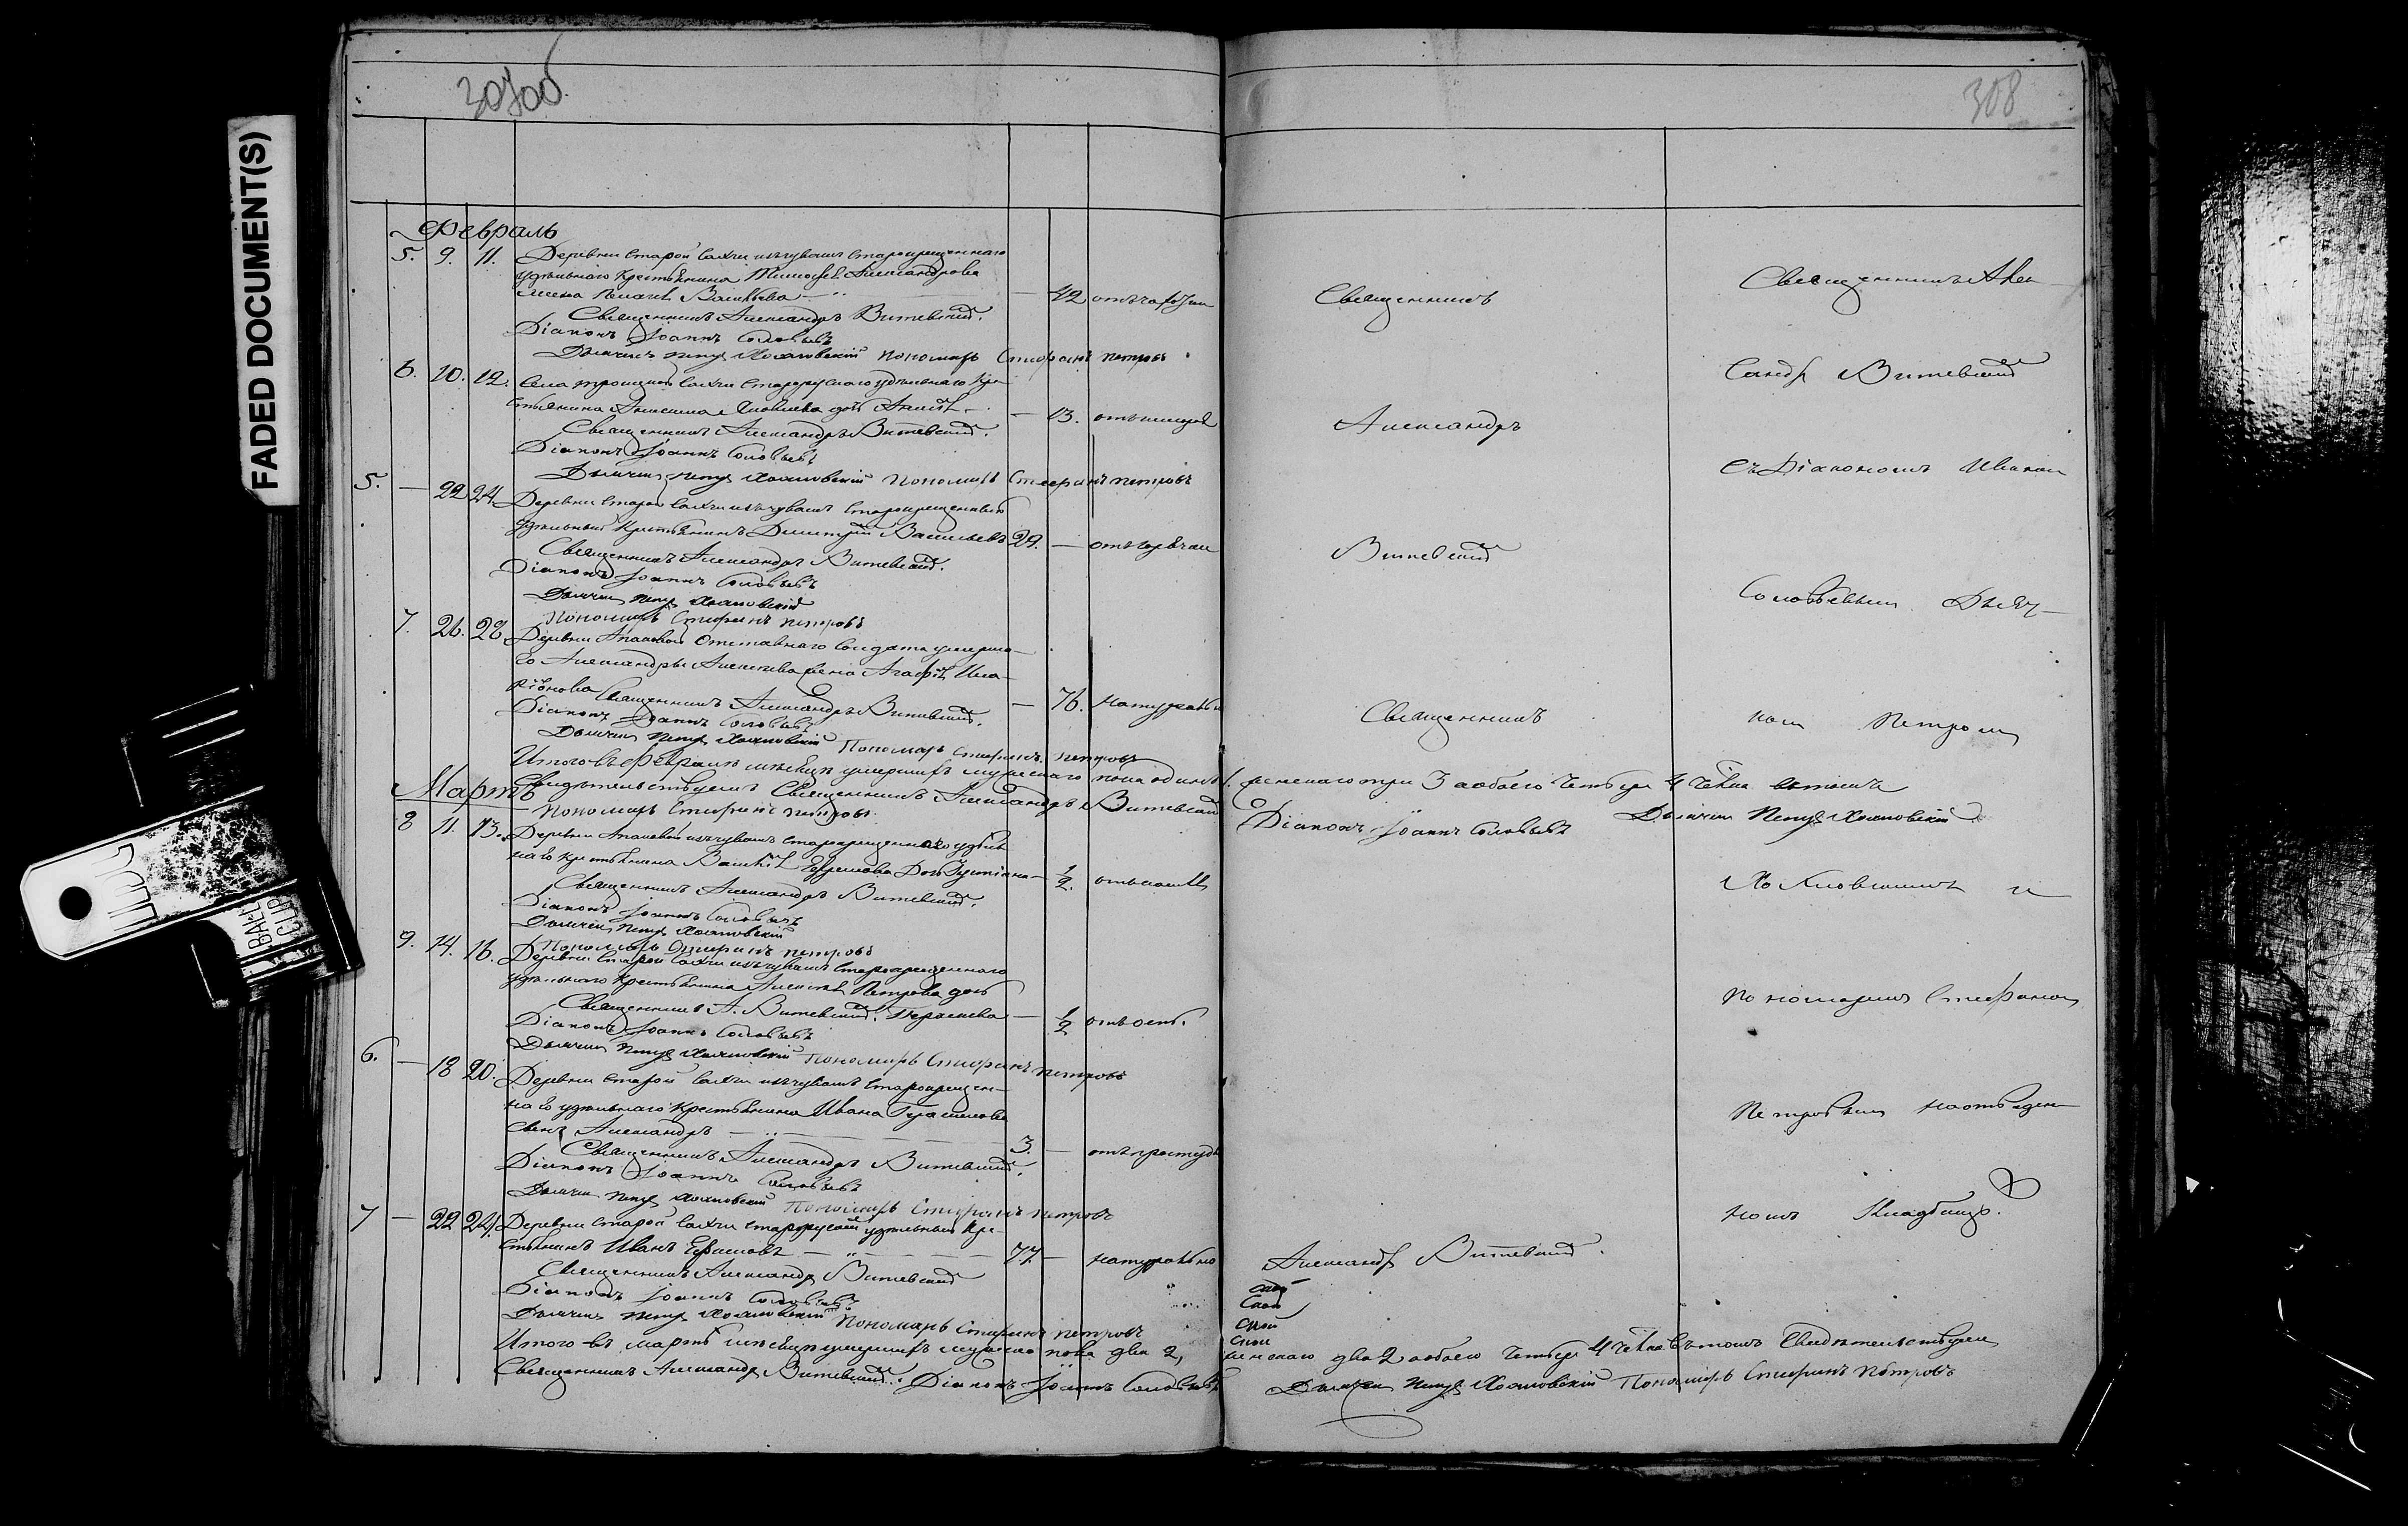 307об.
308
FADED DOCUMENT(S)
Февраль
5. 9. 11. Деревни Старой Сахчи изъ чувашъ старокрещеннаго
удѣльнаго крестьянина Александрова
жена Васильева — 42 отъ
Священникъ Александръ Витевскій.
Діаконъ Іоаннъ Соловьевъ
Дьячекъ Петръ Хохловскій Пономарь Стефанъ Петровъ
6. 10. 12. Села Сахчи старорускаго удѣльнаго кре-
стьянина Яковлева дочь — 13. отъ
Священникъ Александръ Витевскій.
Діаконъ Іоаннъ Соловьевъ
Дьячекъ Петръ Хохловскій Пономарь Стефанъ Петровъ
5. — 22 24. Деревни Старой Сахчи изъ чувашъ старокрещенный
удѣльный крестьянинъ Димитрій Васильевъ 29. — отъ горячки
Священникъ Александръ Витевскій.
Діаконъ Іоаннъ Соловьевъ
Дьячекъ Петръ Хохловскій
Пономарь Стефанъ Петровъ
7. 26. 28 Деревни отставнаго солдата умерша-
го Александры Алексѣева жена Агафія Ила-
ріонова — 76. натурально
Священникъ Александръ Витевскій.
Діаконъ Іоаннъ Соловьевъ
Дьячекъ Петръ Хохловскій Пономарь Стефанъ Петровъ
Итого въ Февралѣ мѣсяцѣ умершихъ мужескаго пола одинъ 1. женскаго три 3 а обоего четыре 4 чѣлка въ томъ
Свидѣтельствуемъ Священникъ Александръ Витевскій Діаконъ Іоаннъ Соловьевъ Дьячекъ Петръ Хохловскій
Пономарь Стефанъ Петровъ.
Мартъ
8 11. 13. Деревни изъ чувашъ старокрещеннаго удѣль
наго крестьянина Ефремова дочь — 1/2. отъ
Священникъ Александръ Витевскій.
Діаконъ Іоаннъ Соловьевъ
Дьячекъ Петръ Хохловскій
Пономарь Стефанъ Петровъ
9. 14. 16. Деревни Старой Сахчи изъ чувашъ старокрещеннаго
удѣльнаго крестьянина Алексѣя Петрова дочь
Священникъ А. Витевскій. — 1/2 отъ осп.
Діаконъ Іоаннъ Соловьевъ
Дьячекъ Петръ Хохловскій Пономарь Стефанъ Петровъ
6. — 18 20. Деревни Старой Сахчи изъ чувашъ старокрещен-
наго удѣльнаго крестьянина Ивана Герасимова
сынъ Александръ — 3. — отъ простуды
Священникъ Александръ Витевскій.
Діаконъ Іоаннъ Соловьевъ
Дьячекъ Петръ Хохловскій Пономарь Стефанъ Петровъ
7 — 22 24. Деревни Старой Сахчи старорускій удѣльный кре-
стьянинъ Иванъ Ефимовъ — 77. — натурально
Священникъ Александръ Витевскій
Діаконъ Іоаннъ Соловьевъ
Дьячекъ Петръ Хохловскій Пономарь Стефанъ Петровъ
Итого въ мартѣ мѣсяцѣ умершихъ мужеска пола два 2, женскаго два 2 а обоего четыре 4 чѣлка въ томъ Свидѣтельствуемъ
Священникъ Александръ Витевскій. Діаконъ Іоаннъ Соловьевъ Дьячекъ Петръ Хохловскій Пономарь Стефанъ Петровъ
Священникъ
Александръ
Витевскій
Священникъ
Александръ Витевскій.
Священникъ Алек-
сандръ Витевскій
съ Діакономъ Иваном
Соловьевым Дьяч-
ком Петром
Хохловскимъ и
Пономаремъ Стефаном
Петровым на отведен-
номъ Кладбищѣ.